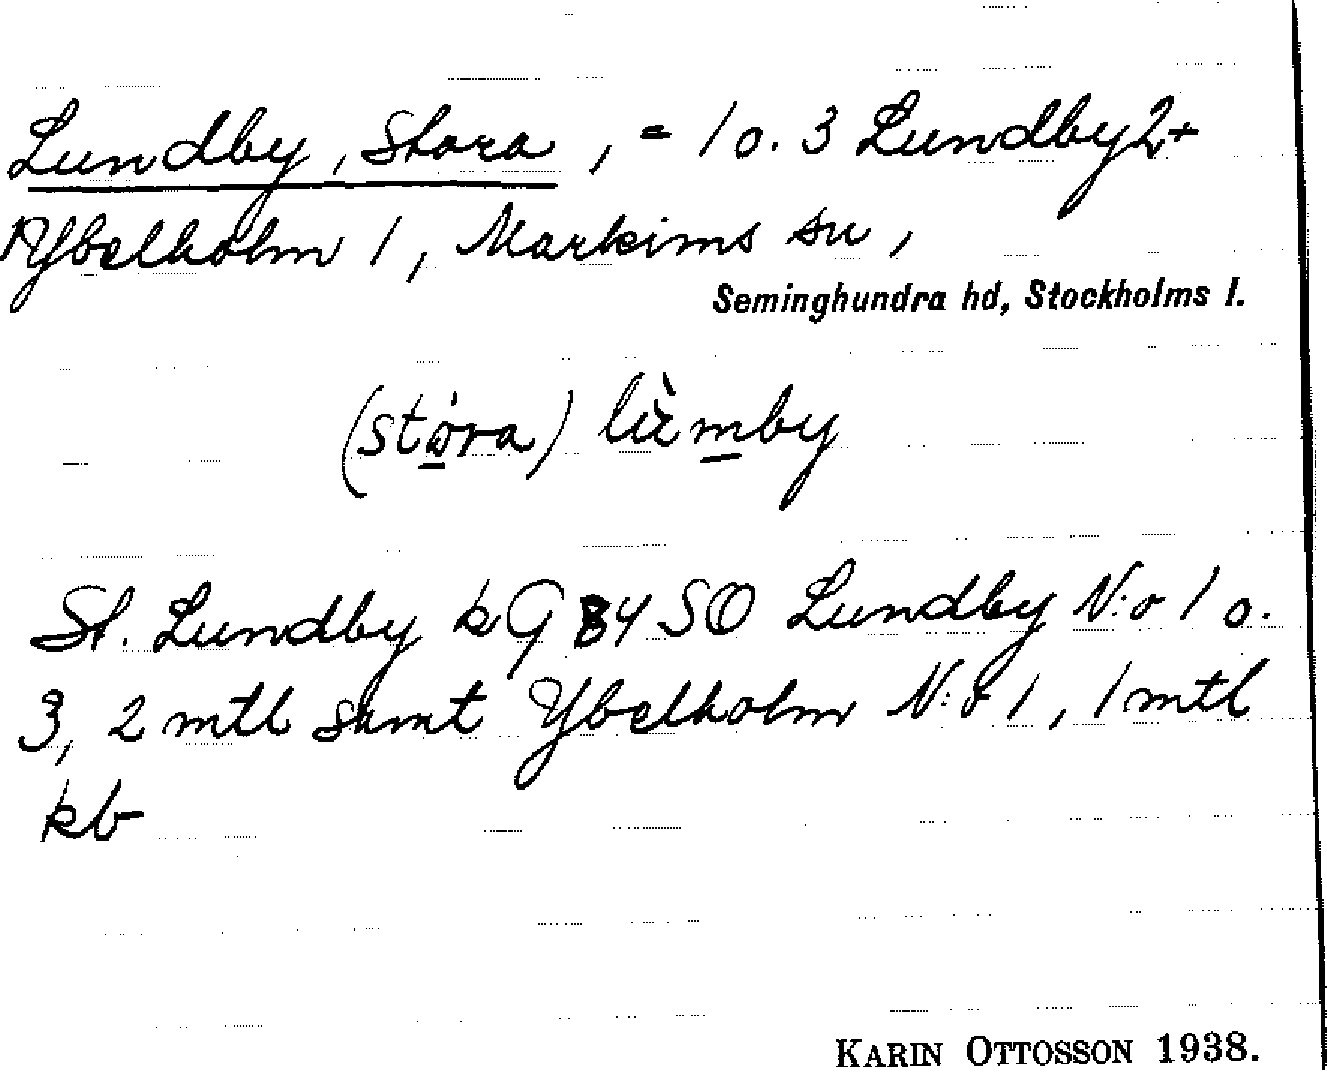 Lundby, Stora, = 1 o. 3 Lundby 2 +
Ybelholm 1, Markims sn,
Seminghundra hd, Stockholms l.
(stóra) lùmby
St. Lundby k G 84 SO Lundby N:o 1 o.
3, 2 mtl samt Ybelholm N:o 1, 1 mtl
kb
KARIN OTTOSSON 1938.